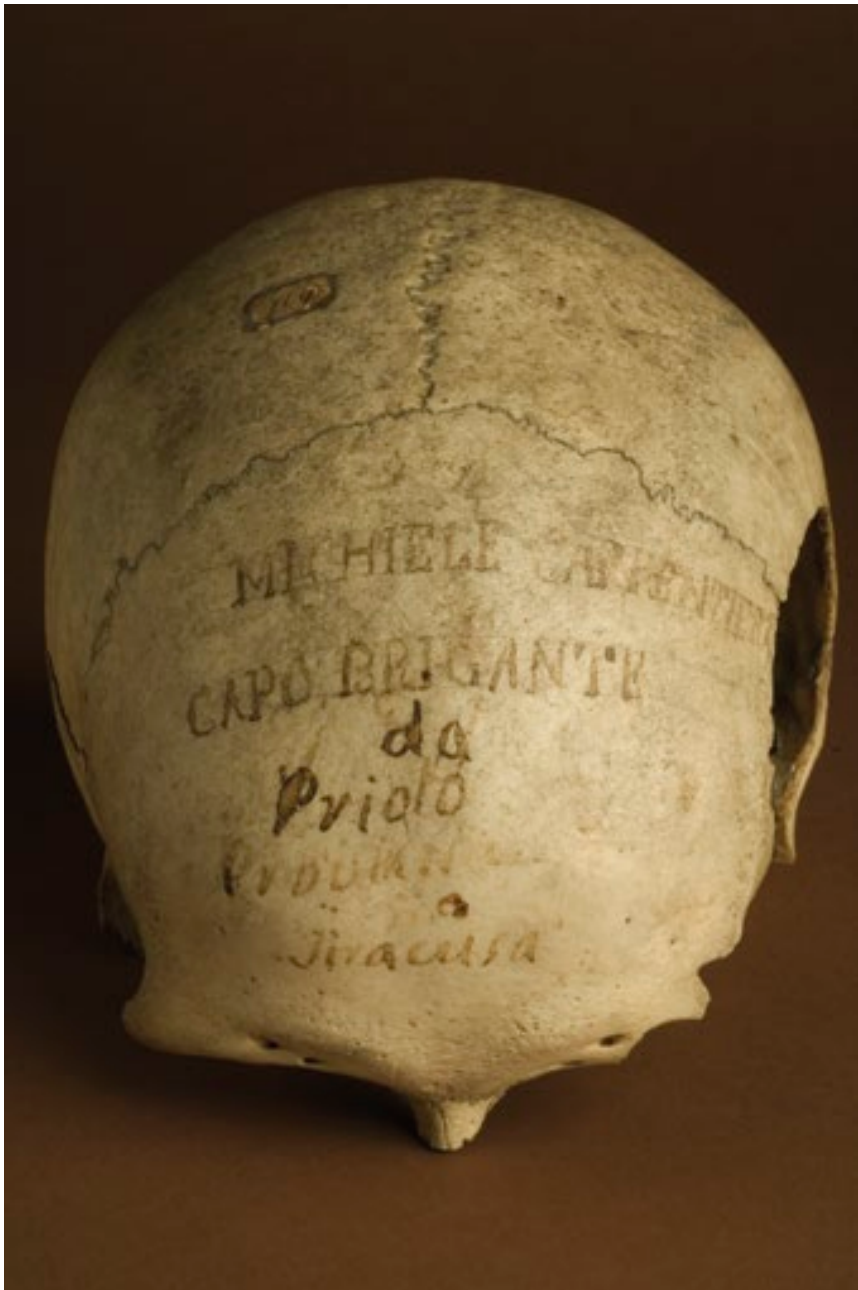 MICHIELE CARPENTIERO
CAPO BRIGANTE
da
Priolo
a
Siracusa